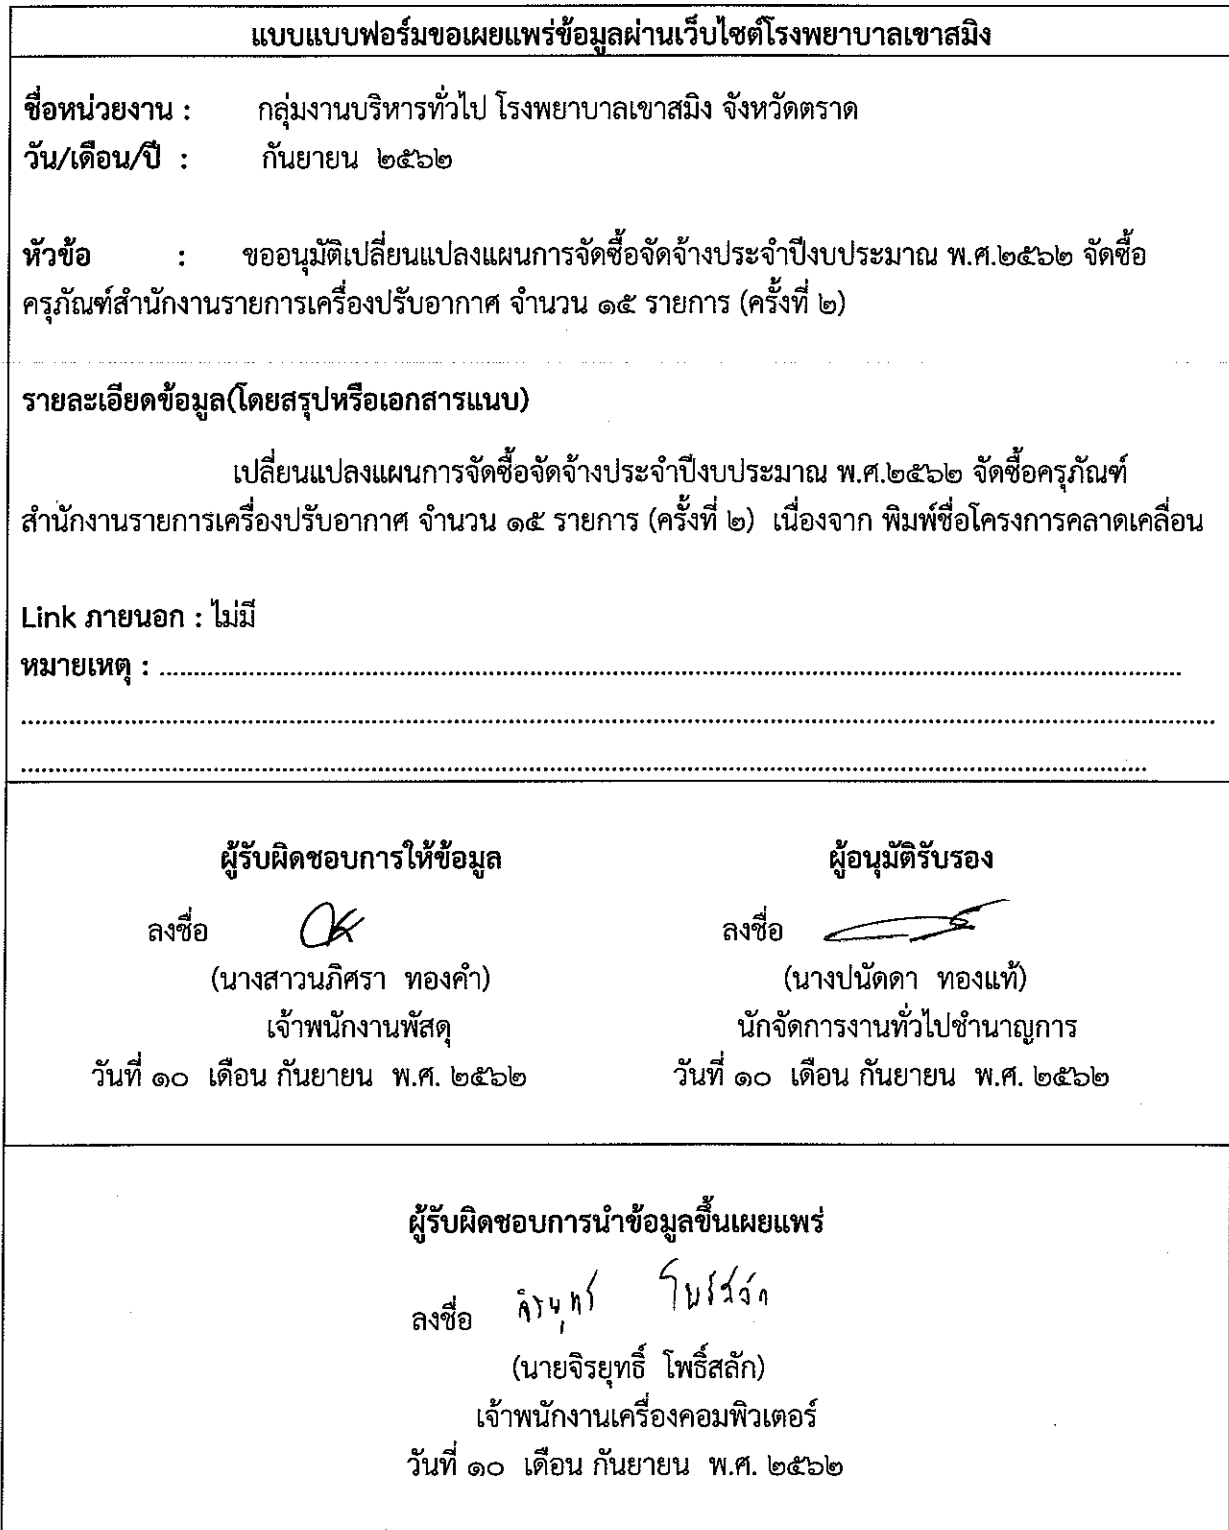 แบบแบบฟอร์มขอเผยแพร่ข้อมูลผ่านเว็บไซต์โรงพยาบาลเขาสมิง
ชื่อหน่วยงาน : กลุ่มงานบริหารทั่วไป โรงพยาบาลเขาสมิง จังหวัดตราด
วัน/เดือน/ปี : กันยายน ๒๕๖๒
หัวข้อ : ขออนุมัติเปลี่ยนแปลงแผนการจัดซื้อจัดจ้างประจำปีงบประมาณ พ.ศ.๒๕๖๒ จัดซื้อ
ครุภัณฑ์สำนักงานรายการเครื่องปรับอากาศ จำนวน ๑๕ รายการ (ครั้งที่ ๒)
รายละเอียดข้อมูล(โดยสรุปหรือเอกสารแนบ)
เปลี่ยนแปลงแผนการจัดซื้อจัดจ้างประจำปีงบประมาณ พ.ศ.๒๕๖๒ จัดซื้อครุภัณฑ์
สำนักงานรายการเครื่องปรับอากาศ จำนวน ๑๕ รายการ (ครั้งที่ ๒) เนื่องจาก พิมพ์ชื่อโครงการคลาดเคลื่อน
Link ภายนอก : ไม่มี
หมายเหตุ :
ผู้รับผิดชอบการให้ข้อมูล ผู้อนุมัติรับรอง
ลงชื่อ ลงชื่อ
(นางสาวนภิศรา ทองคำ) (นางปนัดดา ทองแท้)
เจ้าพนักงานพัสดุ นักจัดการงานทั่วไปชำนาญการ
วันที่ ๑๐ เดือน กันยายน พ.ศ. ๒๕๖๒ วันที่ ๑๐ เดือน กันยายน พ.ศ. ๒๕๖๒
ผู้รับผิดชอบการนำข้อมูลขึ้นเผยแพร่
ลงชื่อ
(นายจิรยุทธิ์ โพธิ์สลัก)
เจ้าพนักงานเครื่องคอมพิวเตอร์
วันที่ ๑๐ เดือน กันยายน พ.ศ. ๒๕๖๒